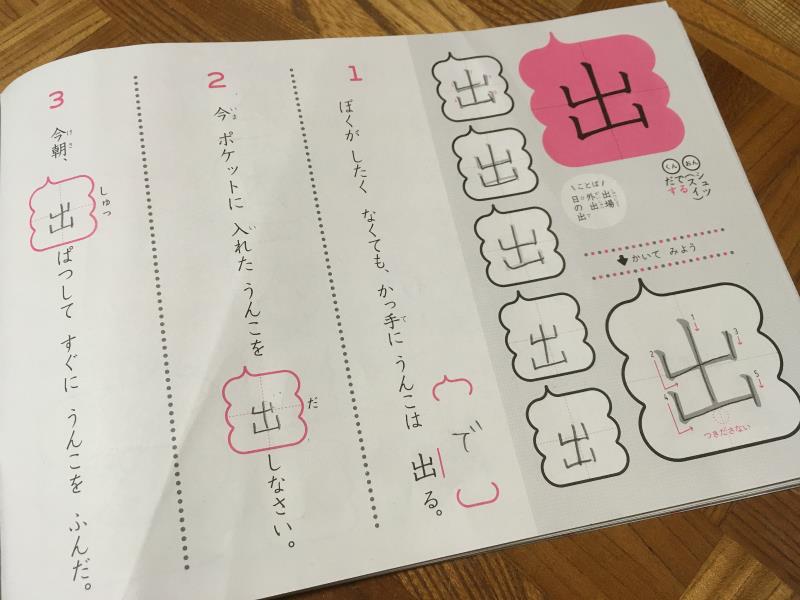 出
おん
シュツ
(スイ)
くん
だす
でる
ことば
出場
外出
日の出
かいて みよう
出
1
2
3
4
5
つきださない
出
出
出
出
出
1
ぼくが したく なくても、かっ手に うんこは 出る。
で
2
今 ポケットに 入れた うんこを 出しなさい。
だ
3
今朝、出ぱつして すぐに うんこを ふんだ。
しゅっ